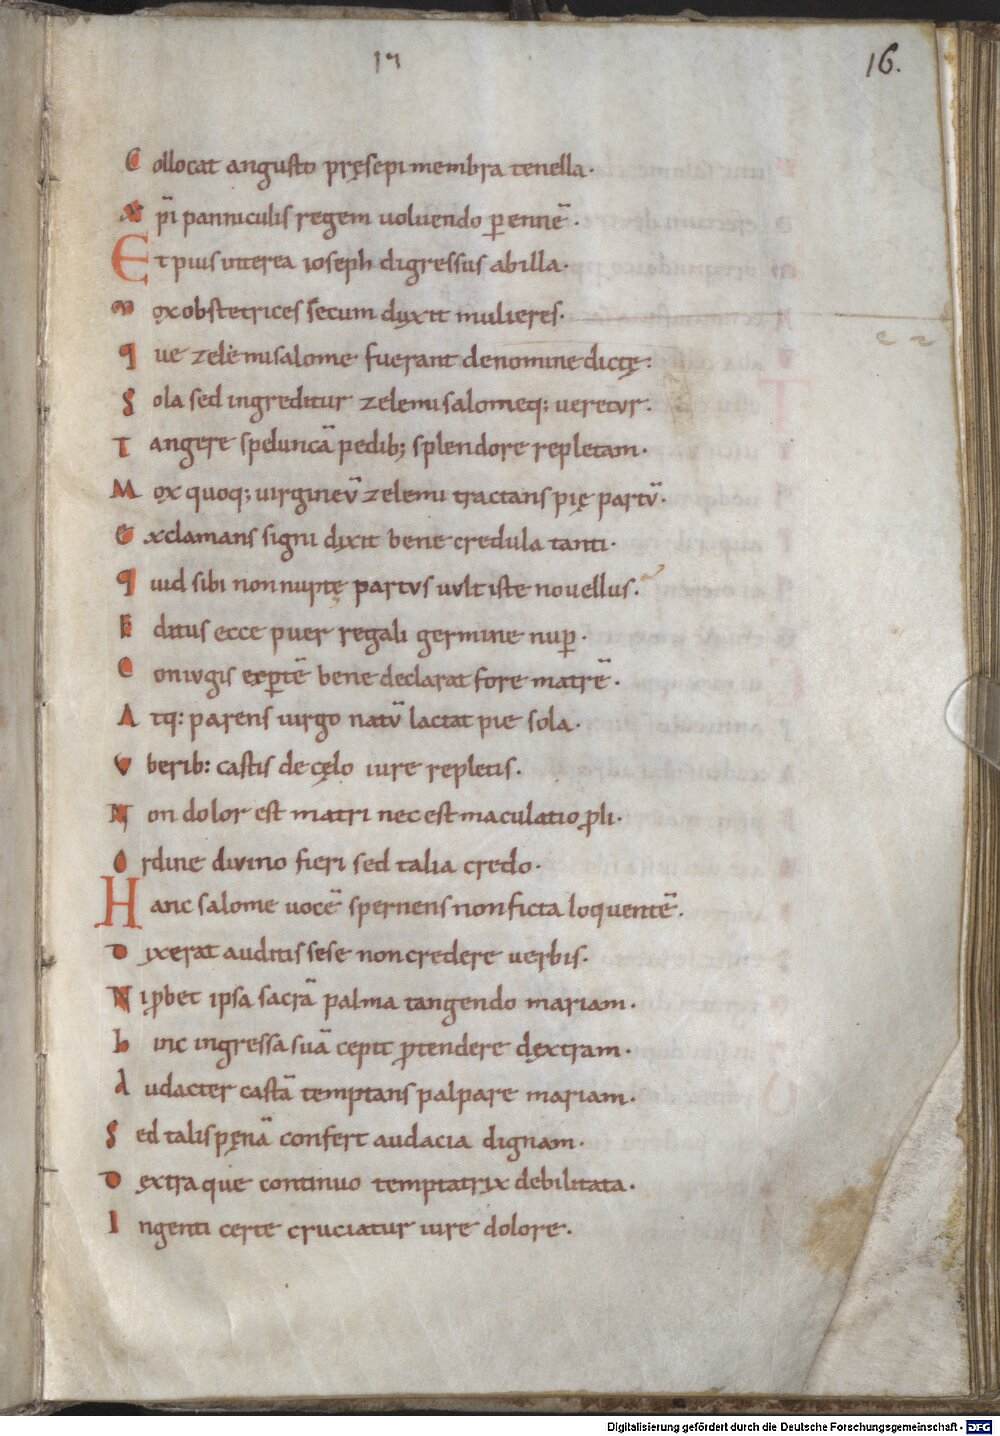 17
16.
Collocat angusto pręsepi membra tenella·
Xp̄i panniculis regem uoluendo ꝑennē·
Et pius interea ioseph digressus ab illa·
Mox obstetrices secum duxit mulieres·
Que zelemi salome fuerant de nomine dictę·
Sola sed ingreditur zelemi salomeq; ueretur·
Tangere speluncā pedib; splendore repletam·
Mox quoq; uirgineū zelemi tractans pię partū·
Exclamans signi dixit bene credula tanti·
Quid sibi non nuptę partus uult iste nouellus·
Editus ecce puer regali germine nuꝑ·
Coniugis exꝑtē bene declarat fore matrē·
Atq: parens uirgo natū lactat pie sola·
Vberib: castis de cęlo iure repletis·
Non dolor est matri nec est maculatio ꝓli·
Ordine diuino fieri sed talia credo·
Hanc salome uocē spernens non ficta loquentē·
Dixerat auditis sese non credere uerbis·
Ni ꝓbet ipsa sacrā palma tangendo mariam·
hinc ingressa suā cepit ꝓtendere dextram·
Audacter castā temptans palpare mariam·
Sed talis pęnā confert audacia dignam·
Dextraque continuo temptatrix debilitata·
Ingenti certe cruciatur iure dolore·
Digitalisierung gefördert durch die Deutsche Forschungsgemeinschaft - DFG